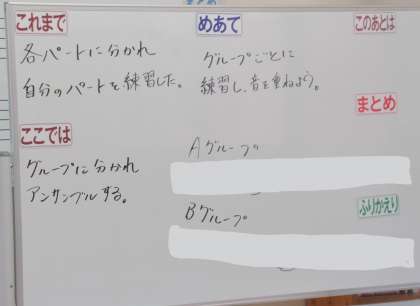 これまで
各パートに分かれ
自分のパートを練習した。
ここでは
グループに分かれ
アンサンブルする。
めあて
グループごとに
練習し、音を重ねよう。
Aグループ
Bグループ
このあとは
まとめ
ふりかえり